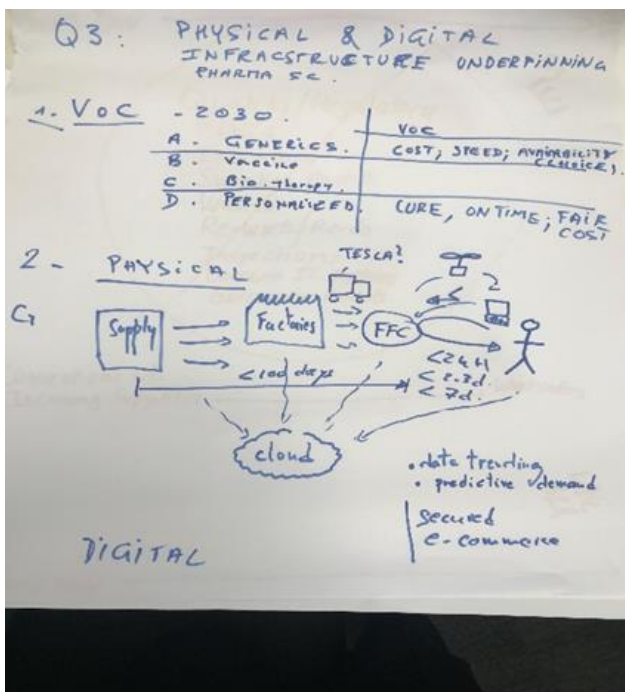 Q3: PHYSICAL & DIGITAL
INFRACSTRUCTURE UNDERPINNING
PHARMA SC.
1. VOC - 2030.
VOC
A. GENERICS. COST, SPEED; AVAILABILITY
B. Vaccine
C. Bio. therapy.
D. PERSONALIZED. CURE, ON TIME; FAIR
COST
2 - PHYSICAL
TESLA?
Supply
Factories
FFC
<24H
<100 days
<2.3d.
<7d.
cloud
• data trending
• predictive demand
secured
e-commerce
DIGITAL